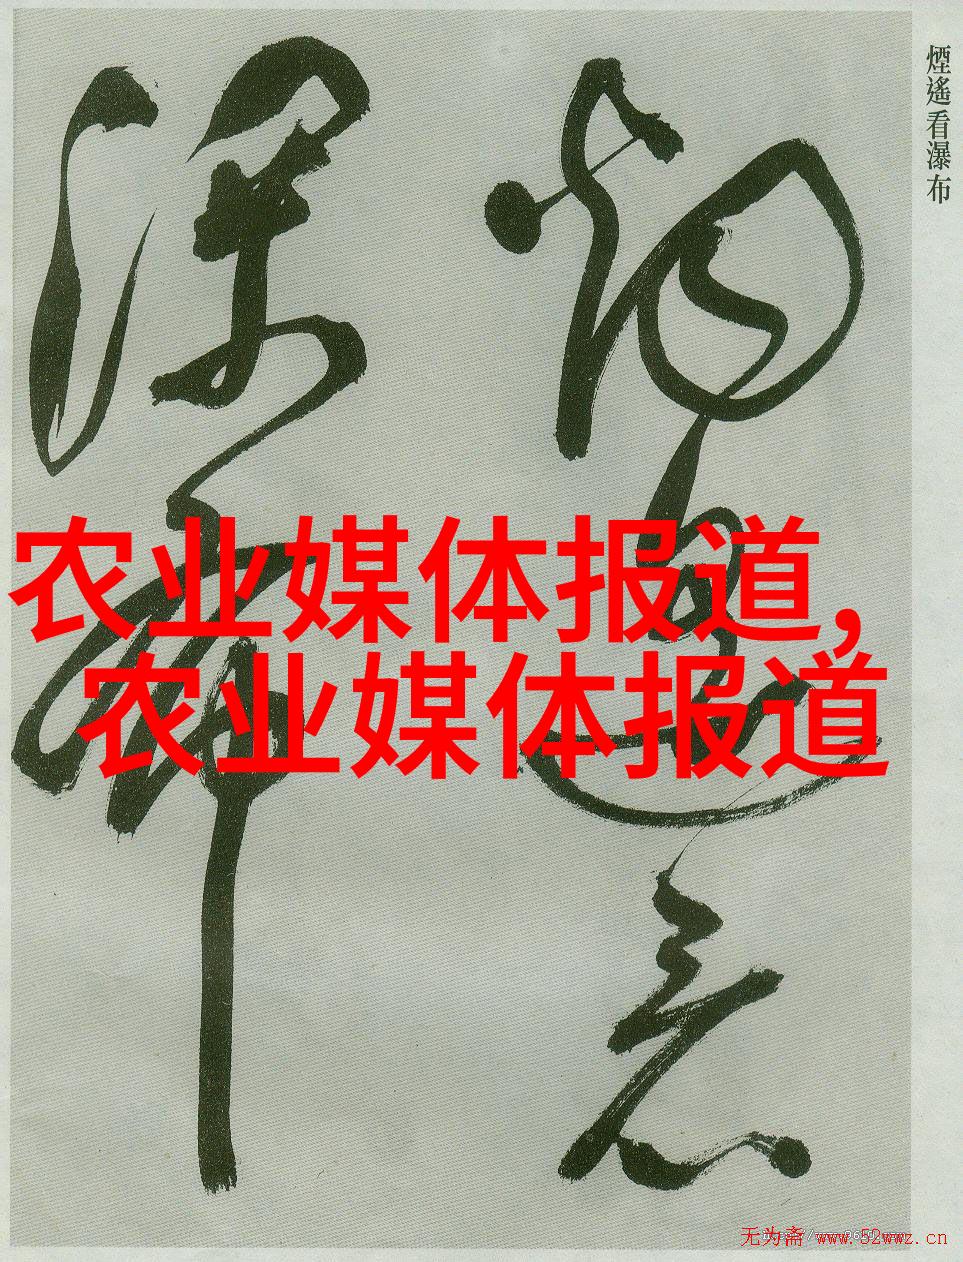 煙遙看瀑布
煙遙看
瀑布
农业媒体报道,
农业媒体报道
无为斋 www.52wwz.cn